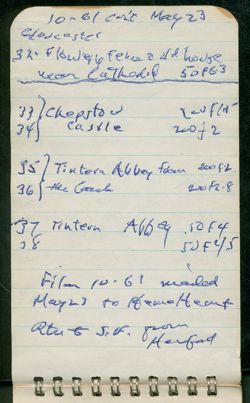 10-61 con't May 23
Gloucester
32. Flowery fence old house
near Cathedral 50 F63
33 } Chepstow 200 f1
34 } Castle 200 f2
35 } Tintern Abbey from 200 f2.
36 } the Coach 200 f2.8
37 Tintern Abbey 50 F4
38 50 F4/5
Film 10-61 mailed
May 23 to Heme
S.F. from